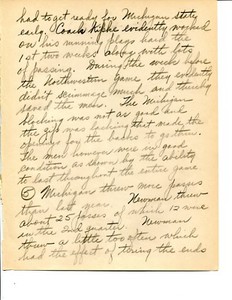 had to get ready for Michigan State
early. Coach Kipke evidently worked
on his running plays hard the
1st two weeks along with lots
of passing. During the week before
the Northwestern game they evidently
didn't scrimmage much and thereby
saved the men. The Michigan
blocking was not as good and
the zip was lacking that made the
openings for the backs to get thru.
The men however were in good
condition as shown by the ability
to last throughout the entire game
⑤ Michigan threw more passes
than last year. Newman threw
about 25 passes of which 12 were
in the 2nd quarter. Newman
threw a little too often which
had the effect of tiring the ends